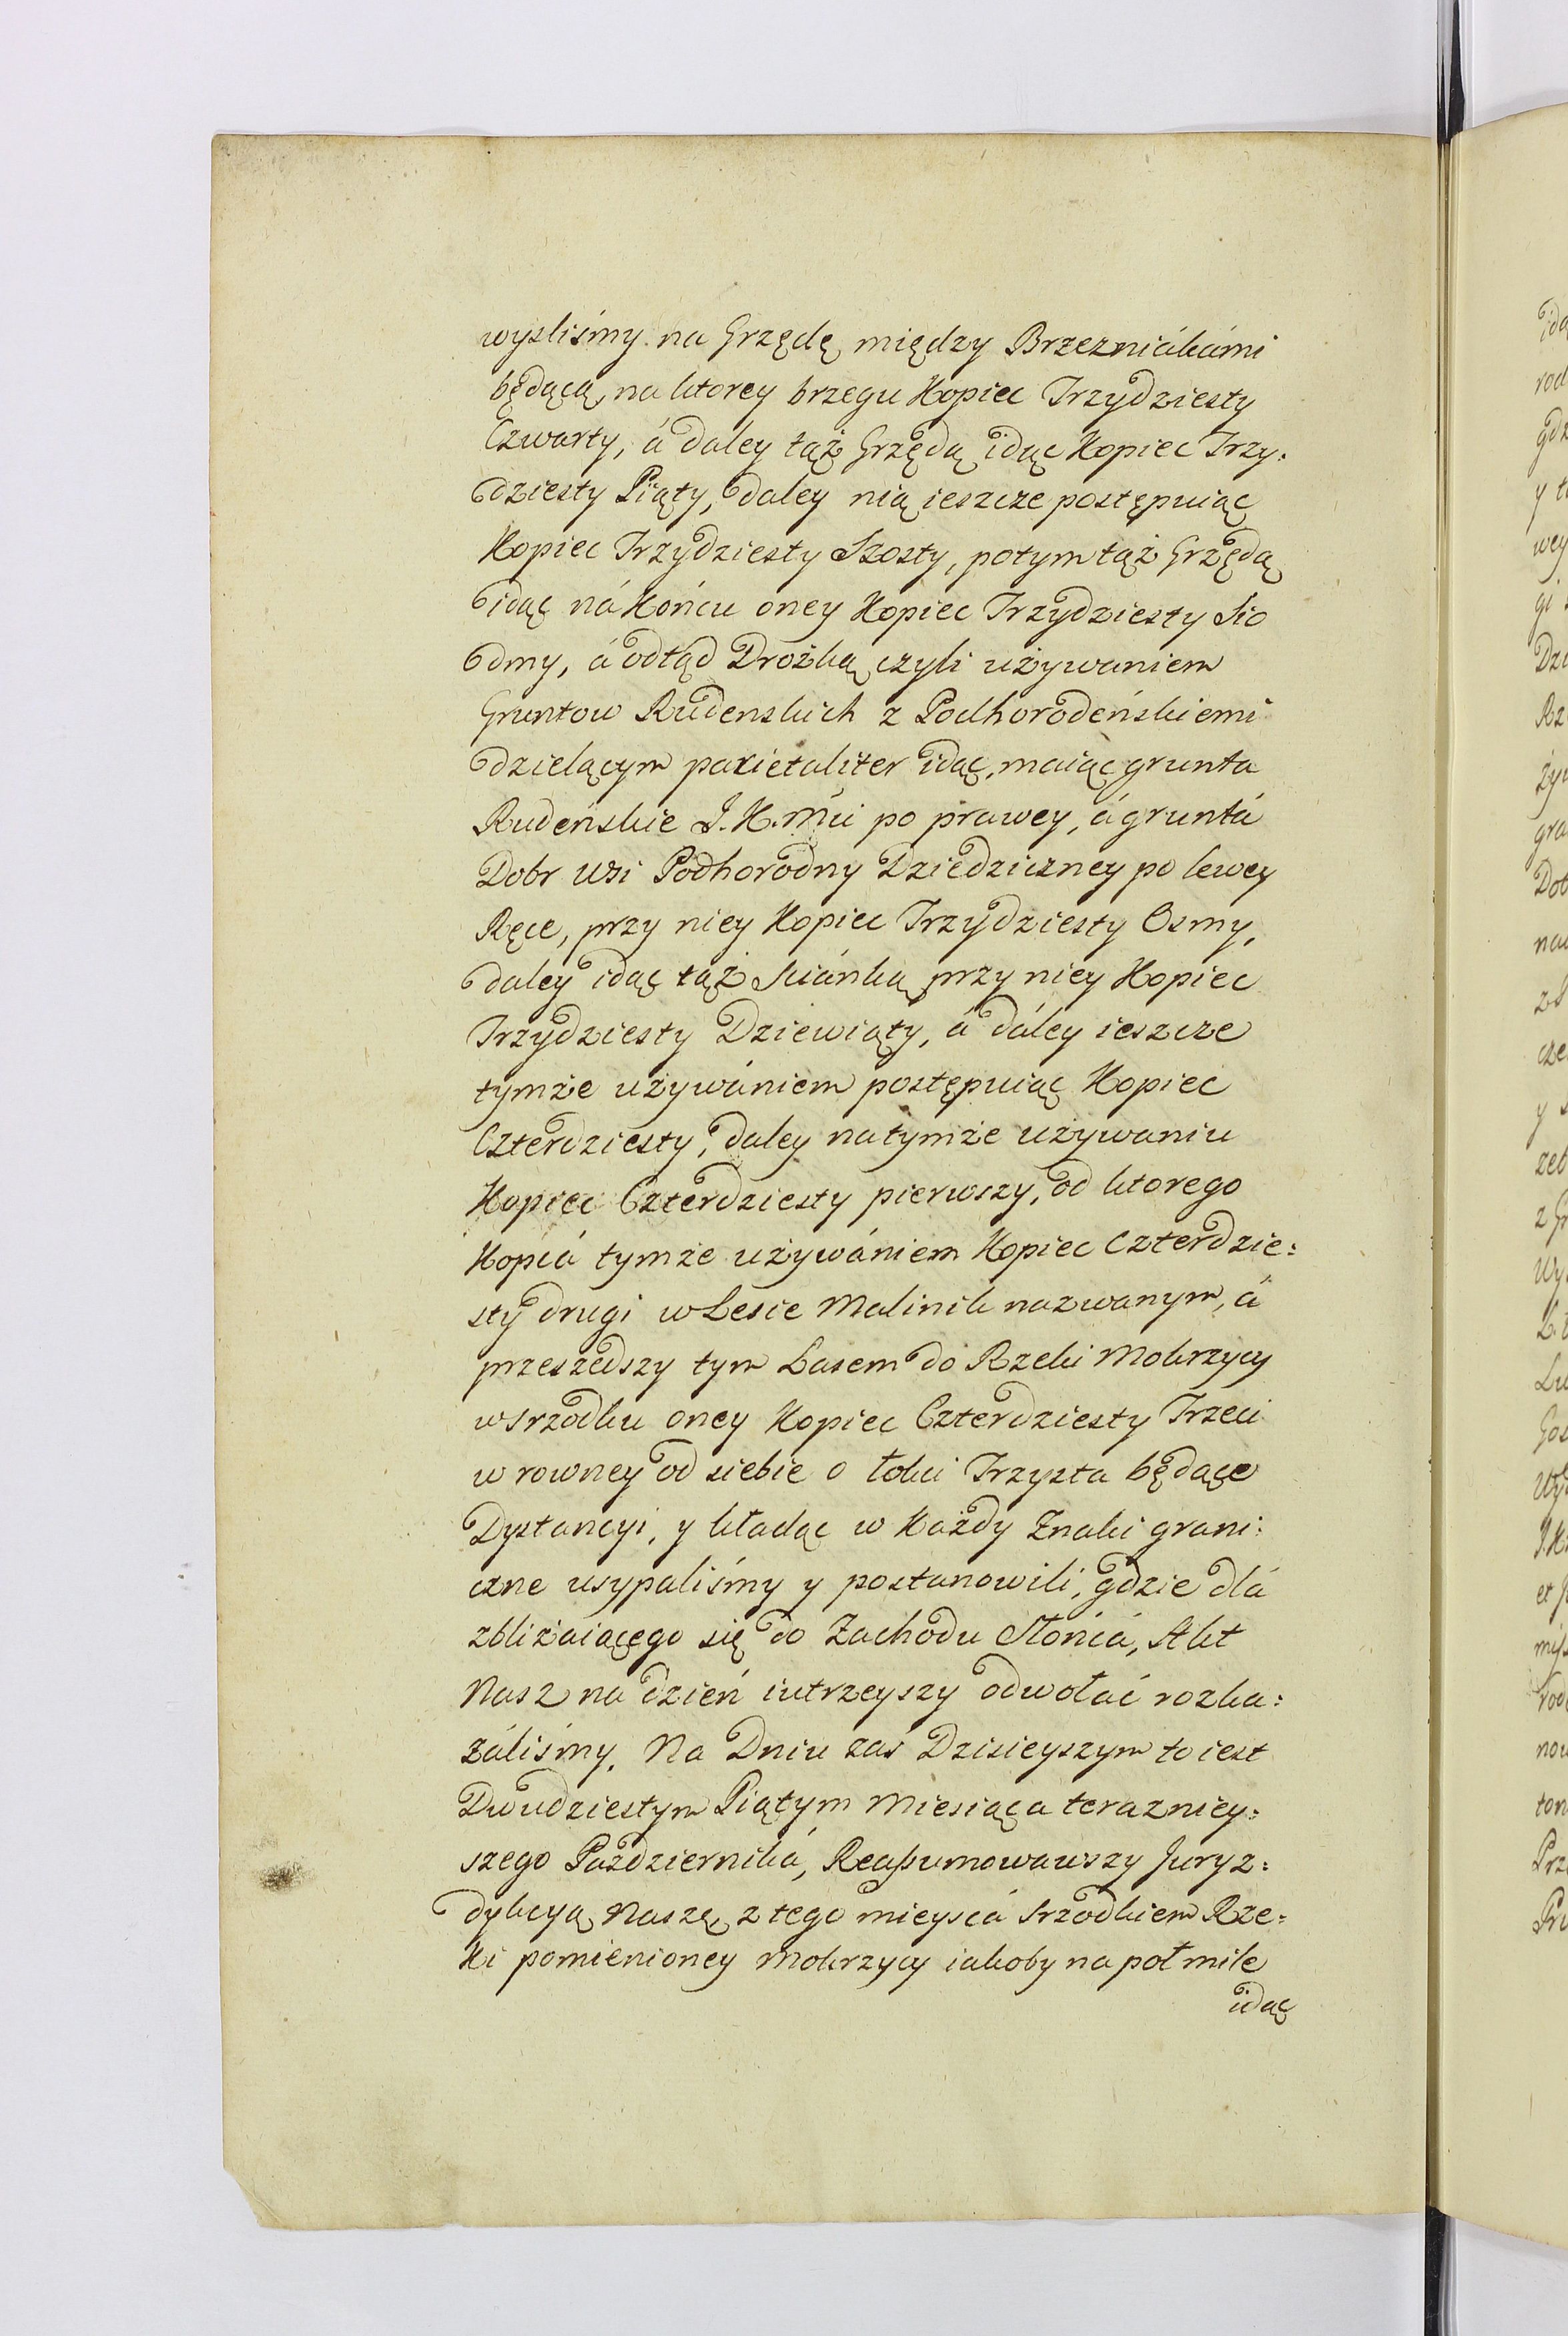 wysliśmy na Grzędę między Brzezniákámi
będącą, na ktorey brzegu Kopiec Trzydziesty
Czwarty, á daley tąż Grzędą idąc Kopiec Trzy:
dziesty Piąty, daley nią ieszcze postępuiąc
Kopiec Trzydziesty Szosty, potym tąż Grzędą
idąc ná Końcu oney Kopiec Trzydziesty Sio
dmy, á odtąd Drożką czyli używaniem
Gruntow Rudenskich z Podhorodeńskiemi
dzielącym parietaliter idąc, maiąc grunta
Rudeńskie J. K. Mći po prawey, á gruntá
Dobr Wsi Podhorodny Dziedziczney po lewey
Ręce, przy niey Kopiec Trzydziesty Osmy,
daley idąc tąż Sciánką przy niey Kopiec
Trzydziesty Dziewiąty, á dáley ieszcze
tymże używániem postępuiąc Kopiec
Czterdziesty, daley na tymże używaniu
Kopiec Czterdziesty pierwszy, od ktorego
Kopcá tymże używániem Kopiec Czterdzie:
sty drugi w Lesie Malinik nazwanym, á
przeszedszy tym Lasem do Rzeki Mokrzycy
w srzodku oney Kopiec Czterdziesty Trzeci
w rowney od siebie o łokci Trzysta będące
Dystancyi, y kładąc w Każdy Znaki grani:
czne usypaliśmy y postanowili, gdzie dlá
zbliżaiącego się do Zachodu Słońcá, Akt
Nasz na dzień iutrzeyszy odwołać rozka:
záliśmy. Na Dniu zaś Dzisieyszym to iest
Dwudziestym Piątym Miesiąca terazniey:
szego Październiká, Reassumowawszy Juryz:
dykcyą Naszę, z tego mieyscá srzodkiem Rze:
ki pomienioney Mokrzycy iakoby na poł mile
idąc